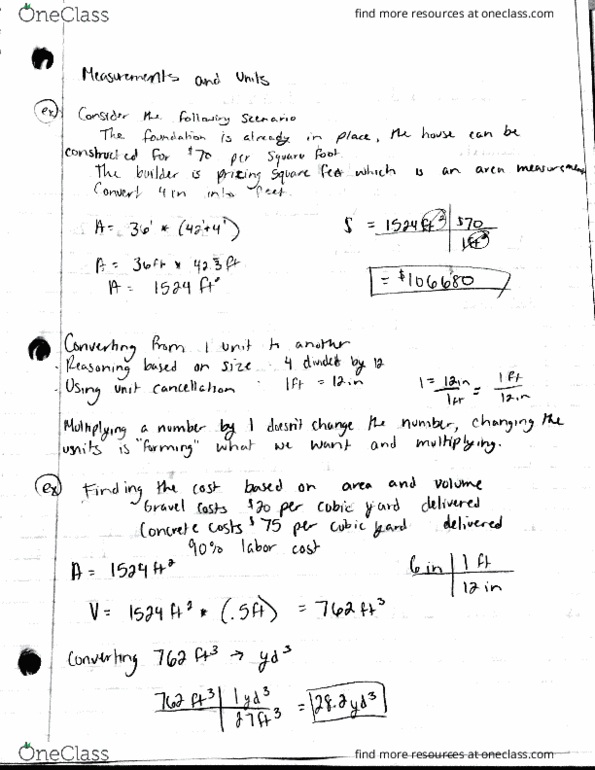 OneClass
find more resources at oneclass.com
Measurements and Units
ex Consider the following Scenario
The foundation is already in place, the house can be
constructed for $70 per square foot.
The builder is prizing square feet which is an area measurement
Convert 4 in into feet.
A = 36' * (42'+4')
A = 36ft * 42.3ft
A = 1524 ft²
$ = 1524 ft² | $70
1ft²
= $106680
Converting from 1 unit to another
- Reasoning based on size . 4 divided by 12
- Using unit cancellation . 1ft = 12in
1 = 12in / 1ft = 1ft / 12in
Multiplying a number by 1 doesn't change the number, changing the
units is "forming" what we want and multiplying.
ex Finding the cost based on area and volume
Gravel costs $20 per cubic yard delivered
Concrete costs $75 per cubic yard delivered
90% labor cost
A = 1524 ft²
6in | 1 ft
12 in
V = 1524 ft² * (.5ft) = 762 ft³
Converting 762 ft³ → yd³
762 ft³ | 1 yd³
27ft³
= 28.2 yd³
OneClass
find more resources at oneclass.com